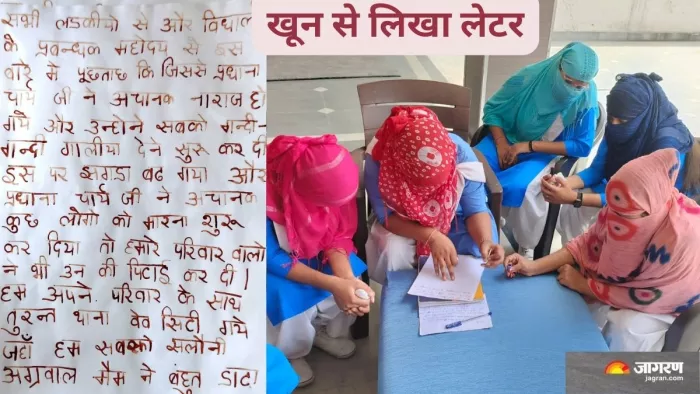 खून से लिखा लेटर
सभी लडकीयो से और विद्याल
के प्रबन्धक महोदय से इस
बारे मे पुछताछ कि जिससे प्रधाना
चार्य जी ने अचानक नाराज हो
गये और उन्होने सबको गन्दी-
गन्दी गालीया देने सुरू कर दी
इस पर झगडा बढ गया और
प्रधाना चार्य जी ने अचानक
कुछ लोगो को मारना शुरू
कर दिया तो हमारे परिवार वालो
ने भी उन की पिटाई कर दी।
हम अपने परिवार के साथ
तुरन्त थाना वेव सिटी गये
जहाँ हम सबको सलोनी
अग्रवाल मैम ने बहुत डाटा
जागरण
jagran.com